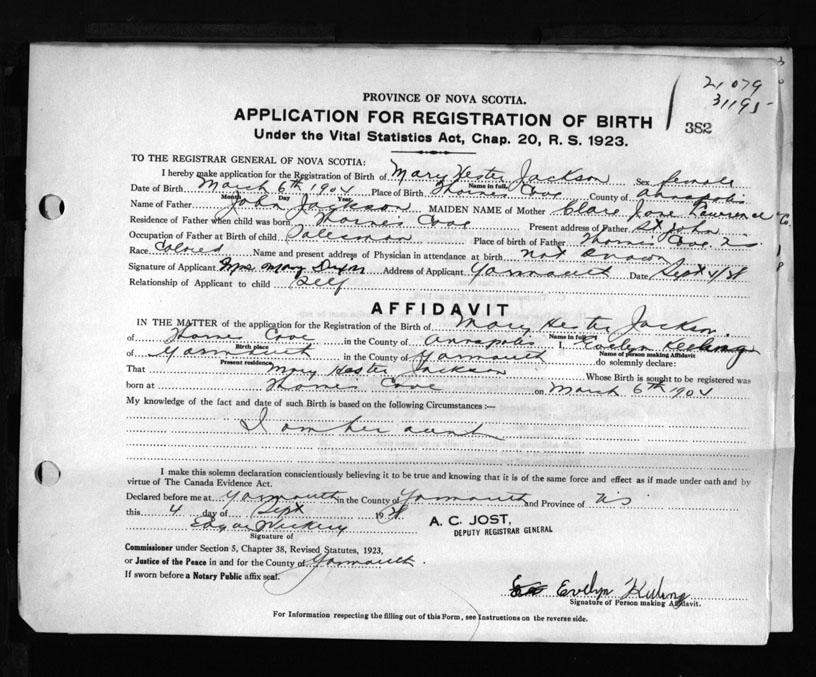 21079
31195
382
PROVINCE OF NOVA SCOTIA.
APPLICATION FOR REGISTRATION OF BIRTH
Under the Vital Statistics Act, Chap. 20, R. S. 1923.
TO THE REGISTRAR GENERAL OF NOVA SCOTIA:
I hereby make application for the Registration of Birth of Mary Hester Jackson Sex female
Name in full
Date of Birth March 6th 1904 Place of Birth Thornes Cove County of Annapolis
Month Day Year
Name of Father John Jackson MAIDEN NAME of Mother Clara Jane Lawrence
Residence of Father when child was born Thornes Cove Present address of Father St John
Occupation of Father at Birth of child Place of birth of Father Thornes Cove N.S
Race Colored Name and present address of Physician in attendance at birth not known
Signature of Applicant Mrs Mary Dixon Address of Applicant Yarmouth Date Sept 4/
Relationship of Applicant to child Self
AFFIDAVIT
IN THE MATTER of the application for the Registration of the Birth of Mary Hester Jackson
Name in full
of Thornes Cove in the County of Annapolis I, Evelyn
Birth place Name of person making Affidavit
of Yarmouth in the County of Yarmouth do solemnly declare:
Present residence.
That Mary Hester Jackson Whose Birth is sought to be registered was
born at Thornes Cove on March 6th 1904
My knowledge of the fact and date of such Birth is based on the following Circumstances :—
I am her aunt
I make this solemn declaration conscientiously believing it to be true and knowing that it is of the same force and effect as if made under oath and by
virtue of The Canada Evidence Act.
Declared before me at Yarmouth in the County of Yarmouth and Province of N S
this 4 day of Sept 19
A. C. JOST,
DEPUTY REGISTRAR GENERAL
Edgar
Signature of
Commissioner under Section 5, Chapter 38, Revised Statutes, 1923,
or Justice of the Peace in and for the County of Yarmouth.
If sworn before a Notary Public affix seal.
Evelyn
Signature of Person making Affidavit.
For Information respecting the filling out of this Form, see Instructions on the reverse side.